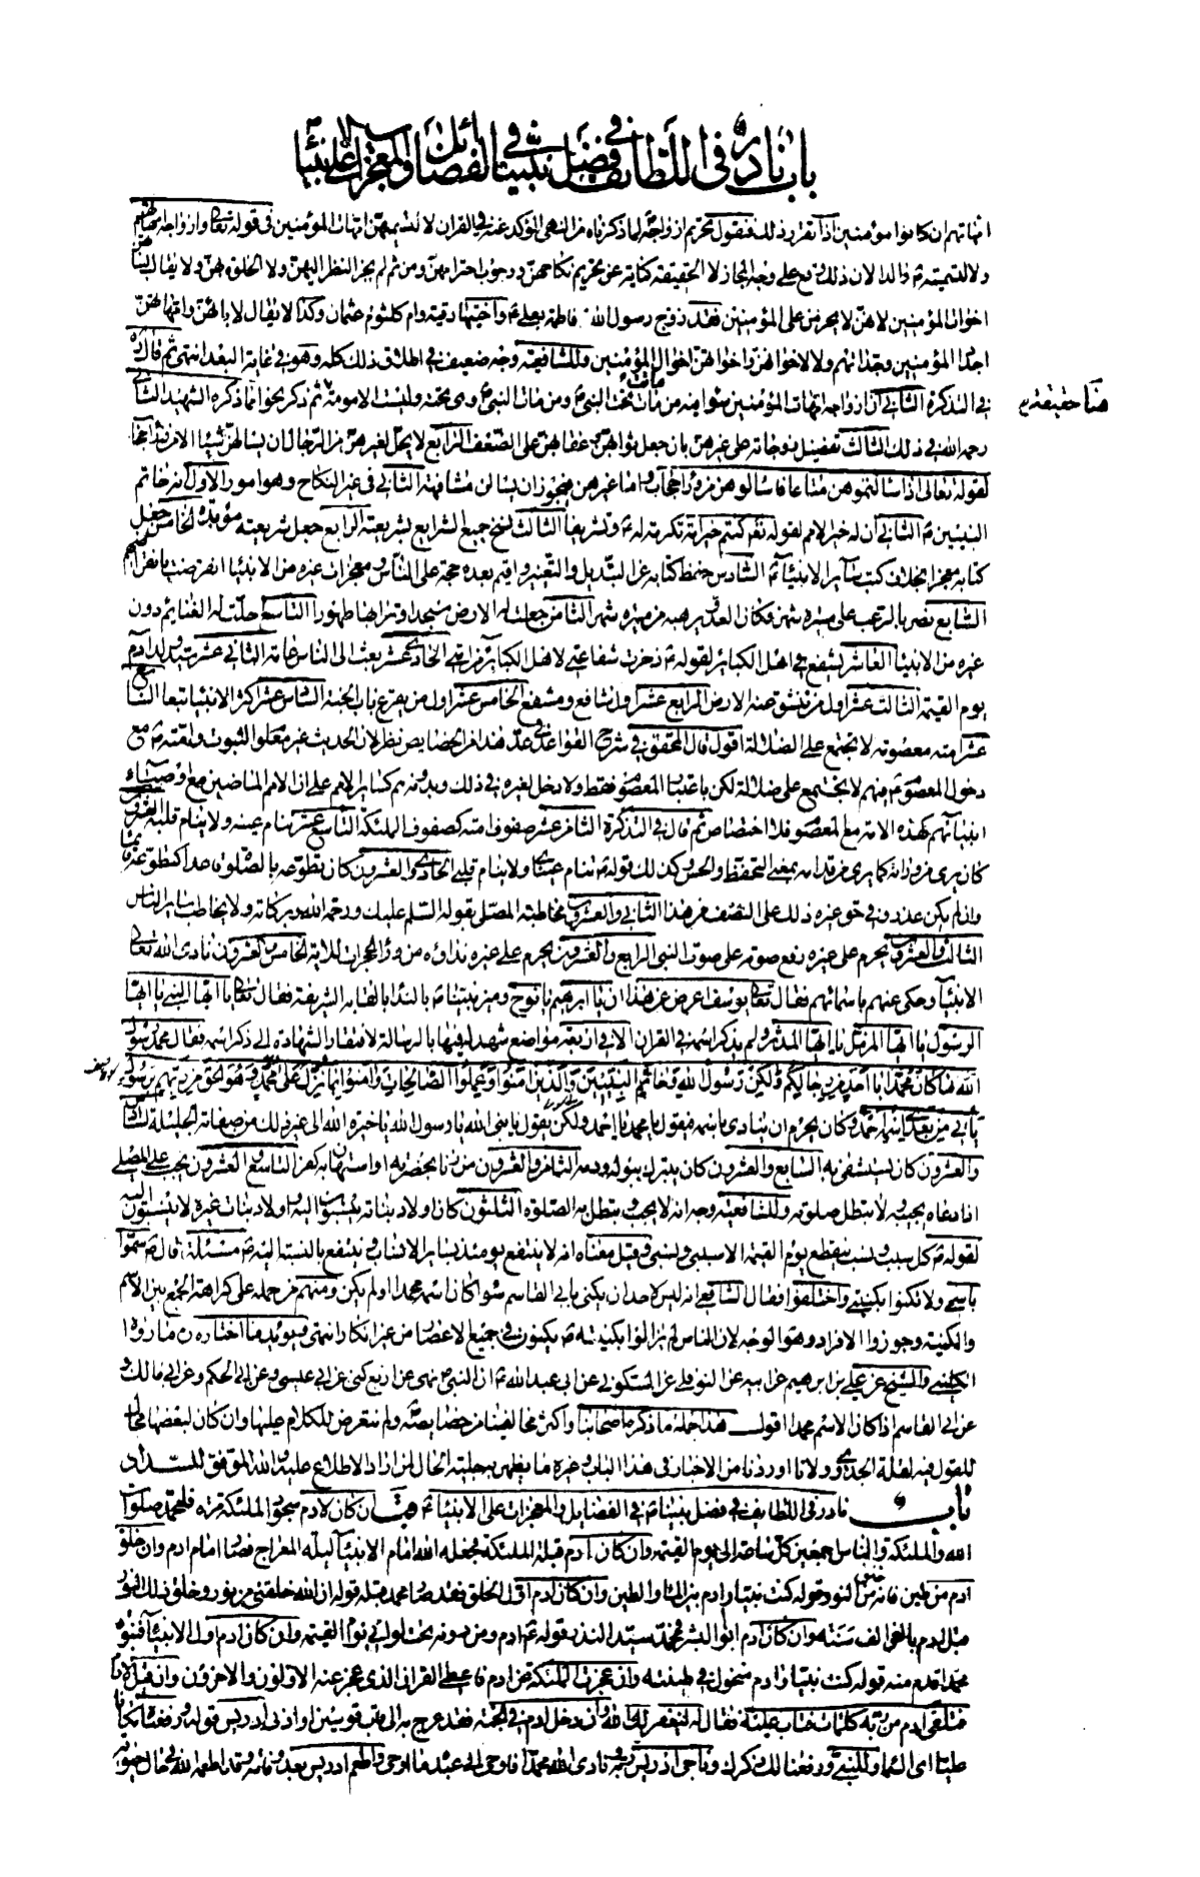 باب نادر في اللطائف في فضل نبينا في الفضائل والمعجزات على الأنبياء
امهاتهم ان كانوا مؤمنين اذا تقرر ذلك فنقول تحريم ازواجه لما ذكرناه من النهي المؤكد عنه في القران لا لتسميتهن امهات المؤمنين في قوله تعالى وازواجه امهاتهم
ولا لتسميته والدا لان ذلك وقع على وجه المجاز لا الحقيقة كناية عن تحريم نكاحهن ووجوب احترامهن ومن ثم لم يجز النظر اليهن ولا الخلوة بهن ولا يقال بناتهن
اخوات المؤمنين لانهن لا يحرمن على المؤمنين فقد زوج رسول الله فاطمة بعلي واختيها رقية وام كلثوم عثمان وكذا لا يقال لابائهن وامهاتهن
اجداد المؤمنين وجداتهم ولا لاخوانهن واخواتهن اخوال المؤمنين وللشافعية وجه ضعيف في اطلاق ذلك كله وهو في غاية البعد انتهى ثم قال
في التذكرة الثاني ان ازواجه امهات المؤمنين سواء فيه من مات تحت النبي ومن مات النبي وهي تحته وليست الامومة ثم ذكر نحوا مما ذكره الشهيد الثاني
هنا حقيقة
رحمه الله في ذلك الثالث تفضيل زوجاته على غيرهن بان جعل ثوابهن وعقابهن على الضعف الرابع لا يحل لغيرهن من الرجال ان يسالهن شيئا الا من وراء حجاب
لقوله تعالى اذا سالتموهن متاعا فاسالوهن من وراء حجاب واما غيرهن فيجوز ان يسالن مشافهة الثاني في غير النكاح وهو امور الاول انه خاتم
النبيين الثاني ان له خير الامم لقوله تعالى كنتم خير امة تكرمة له وتشريفا الثالث نسخ جميع الشرايع بشريعته الرابع جعل شريعته مؤبدة الخامس جعل
كتابه معجزا بخلاف كتب ساير الانبياء السادس حفظ كتابه عن التبديل والتغيير واقيم بعده حجة على الناس ومعجزات غيره من الانبياء انقرضت بانقراضهم
السابع نصر بالرعب على مسيرة شهر فكان العدو يرهبه من مسيرة شهر الثامن جعلت له الارض مسجدا وترابها طهورا التاسع حلت له الغنايم دون
غيره من الانبياء العاشر يشفع في اهل الكباير لقوله ذخرت شفاعتي لاهل الكباير من امتي الحادي عشر بعث الى الناس عامة الثاني عشر سيد ولد ادم
يوم القيمة الثالث عشر اول من تنشق عنه الارض الرابع عشر اول شافع ومشفع الخامس عشر اول من يقرع باب الجنة السادس عشر اكثر الانبياء تبعا السابع
عشر امته معصومة لا تجتمع على الضلالة اقول قال المحقق في شرح القواعد في عد هذا من الخصايص نظر لان الحديث غير معلوم الثبوت وامته مع
دخول المعصوم فيهم لا تجتمع على ضلالة لكن باعتبار المعصوم فقط ولا دخل لغيره في ذلك وبدونه هم كساير الامم على ان الامم الماضين مع اوصياء
انبيائهم كهذه الامة مع المعصوم فلا اختصاص ثم قال في التذكرة الثامن عشر صفوف امته كصفوف الملئكة التاسع عشر تنام عينه ولا ينام قلبه العشرون
كان يرى من ورائه كما يرى من قدامه بمعنى التحفظ والحس وكذلك قوله تنام عيناي ولا ينام قلبي الحادي والعشرون كان تطوعه بالصلوة قاعدا كتطوعه قائما
وان لم يكن عذر وفي حق غيره ذلك على النصف من هذا الثاني والعشرون مخاطبة المصلي بقوله السلم عليك ورحمة الله وبركاته ولا يخاطب ساير الناس
الثالث والعشرون يحرم على غيره رفع صوته على صوت النبي الرابع والعشرون يحرم على غيره نداؤه من وراء الحجرات للاية الخامس والعشرون نادى الله تعالى
الانبياء وحكى عنهم باسمائهم فقال تعالى يوسف اعرض عن هذا ان يا ابرهيم يا نوح وميز نبينا بالنداء بالقابه الشريفة فقال تعالى يا ايها النبي يا ايها
الرسول يا ايها المزمل يا ايها المدثر ولم يذكر اسمه في القران الا في اربعة مواضع شهد له فيها بالرسالة لافتقار الشهادة الى ذكر اسمه فقال محمد رسول
الله ما كان محمد ابا احد من رجالكم ولكن رسول الله وخاتم النبيين والذين امنوا وعملوا الصالحات وامنوا بما نزل على محمد وهو الحق من ربهم برسول
ياتي من بعدي اسمه احمد وكان يحرم ان ينادى باسمه فيقول يا محمد يا احمد ولكن يقول يا نبي الله يا رسول الله يا خيرة الله الى غير ذلك من صفاته الجليلة السادس
والعشرون كان يستشفى به السابع والعشرون كان يتبرك ببوله ودمه الثامن والعشرون من زنا بحضرته او استهان به كفر التاسع والعشرون يجب على المصلي
اذا دعاه يجيبه ولا تبطل صلوته وللشافعية وجه انه لا يجب وتبطل به الصلوة الثلثون كان اولاد بناته ينسبون اليه واولاد بنات غيره لا ينسبون اليه
لقوله كل سبب ونسب ينقطع يوم القيمة الا سببي ونسبي وقيل معناه انه لا ينتفع يومئذ بساير الانساب وينتفع بالنسبة اليه مسئلة قال سموا
باسمي ولا تكنوا بكنيتي واختلفوا فقال الشافعي انه ليس لاحد ان يكنى بابي القاسم سواء كان اسمه محمدا او لم يكن ومنهم من حمله على كراهة الجمع بين الاسم
والكنية وجوزوا الافراد وهو الوجه لان الناس لم يزالوا بكنيته يكنون في جميع الاعصار من غير انكار انتهى ويؤيد ما اختاره ما رواه
الكليني والشيخ عن علي بن ابرهيم عن ابيه عن النوفلي عن السكوني عن ابي عبد الله ان النبي نهى عن اربع كنى عن ابي عيسى وعن ابي الحكم وعن ابي مالك و
عن ابي القاسم اذا كان الاسم محمدا اقول هذا جملة ما ذكره اصحابنا واكثر مخالفينا من خصايصه ولم نتعرض للكلام عليها وان كان لبعضها مجال
للقول فيه لقلة الجدوى ولانا اوردنا من الاخبار في هذا الباب وغيره ما يظهر به جلية الحال لمن اراد الاطلاع عليه والله الموفق للسداد
باب نادر في اللطايف في فضل نبينا في الفضايل والمعجزات على الانبياء قب ان كان لادم سجود الملئكة مرة فلمحمد صلوات
الله والملئكة والناس اجمعين كل ساعة الى يوم القيمة وان كان ادم قبلة الملئكة فجعله الله امام الانبياء ليلة المعراج فصار امام ادم وان خلق
ادم من طين فانه خلق من النور وقوله كنت نبيا وادم بين الماء والطين وان كان ادم اول الخلق فقد صار محمد قبله قوله ان الله خلقني من نور وخلق ذلك النور
قبل ادم بالفي الف سنة وان كان ادم ابو البشر فمحمد سيد النذر بقوله ادم ومن دونه تحت لوائي يوم القيمة وان كان ادم اول الانبياء فنبوة
محمد اقدم منه قوله كنت نبيا وادم منخول في طينته وان عجزت الملئكة عن ادم فاعطي القران الذي عجز عنه الاولون والاخرون وان قيل لادم
فتلقى ادم من ربه كلمات فتاب عليه فقال له ليغفر لك الله وان دخل ادم في الجنة فقد عرج به الى قاب قوسين او ادنى ادريس قوله ورفعناه مكانا
عليا اي السماء وللنبي ورفعنا لك ذكرك وناجى ادريس ربه ونادى الله محمدا فاوحى الى عبده ما اوحى واطعم ادريس بعد وفاته وقد اطعمه الله في حال حيوته